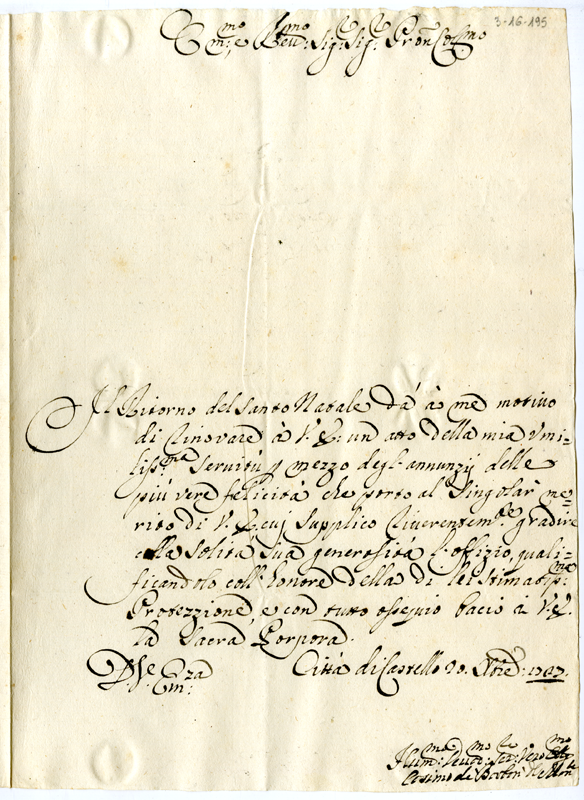 3-16-195
Em:mo e Rev:mo Sig:re Sig:re Pron Col:mo
Il Ritorno del Santo Natale dà à me motivo
di rinovare à V. E: un atto della mia Umi=
liss:ma Servitù p mezzo degl'annunzij delle
più vere felicità che porto al Singolar me=
rito di V. E. cui Supplico riverentem:te gradire
colla Solita Sua generosità l'offizio, quali=
ficandolo coll'honore della di lei Stimatiss:ma
Protezzione, e con tutto ossequio bacio à V. E.
la Sacra Porpora.
Di V:e Em:za Città di Castello 20. Xbre 1727.
Hum:mo Devo:mo Ser:re Vero
Cosimo de